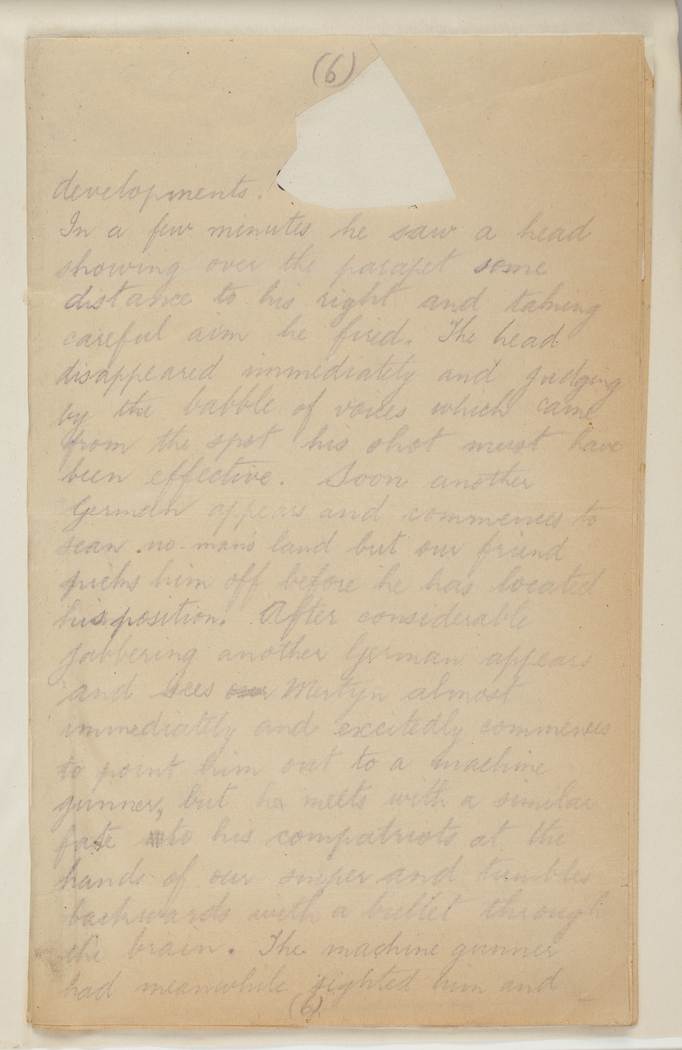 (6)
developments.
In a few minutes he saw a head
showing over the parapet some
distance to his right and taking
careful aim he fired. The head
disappeared immediately and judging
by the babble of voices which came
from the spot his shot must have
been effective. Soon another
German appears and commences to
scan no-man's land but our friend
picks him off before he has located
his position. After considerable
jabbering another German appears
and sees our Martyn almost
immediately and excitedly commences
to point him out to a machine
gunner, but he meets with a similar
fate to his compatriots at the
hands of our sniper and tumbles
backwards with a bullet through
the brain. The machine gunner
had meanwhile sighted him and
(6)